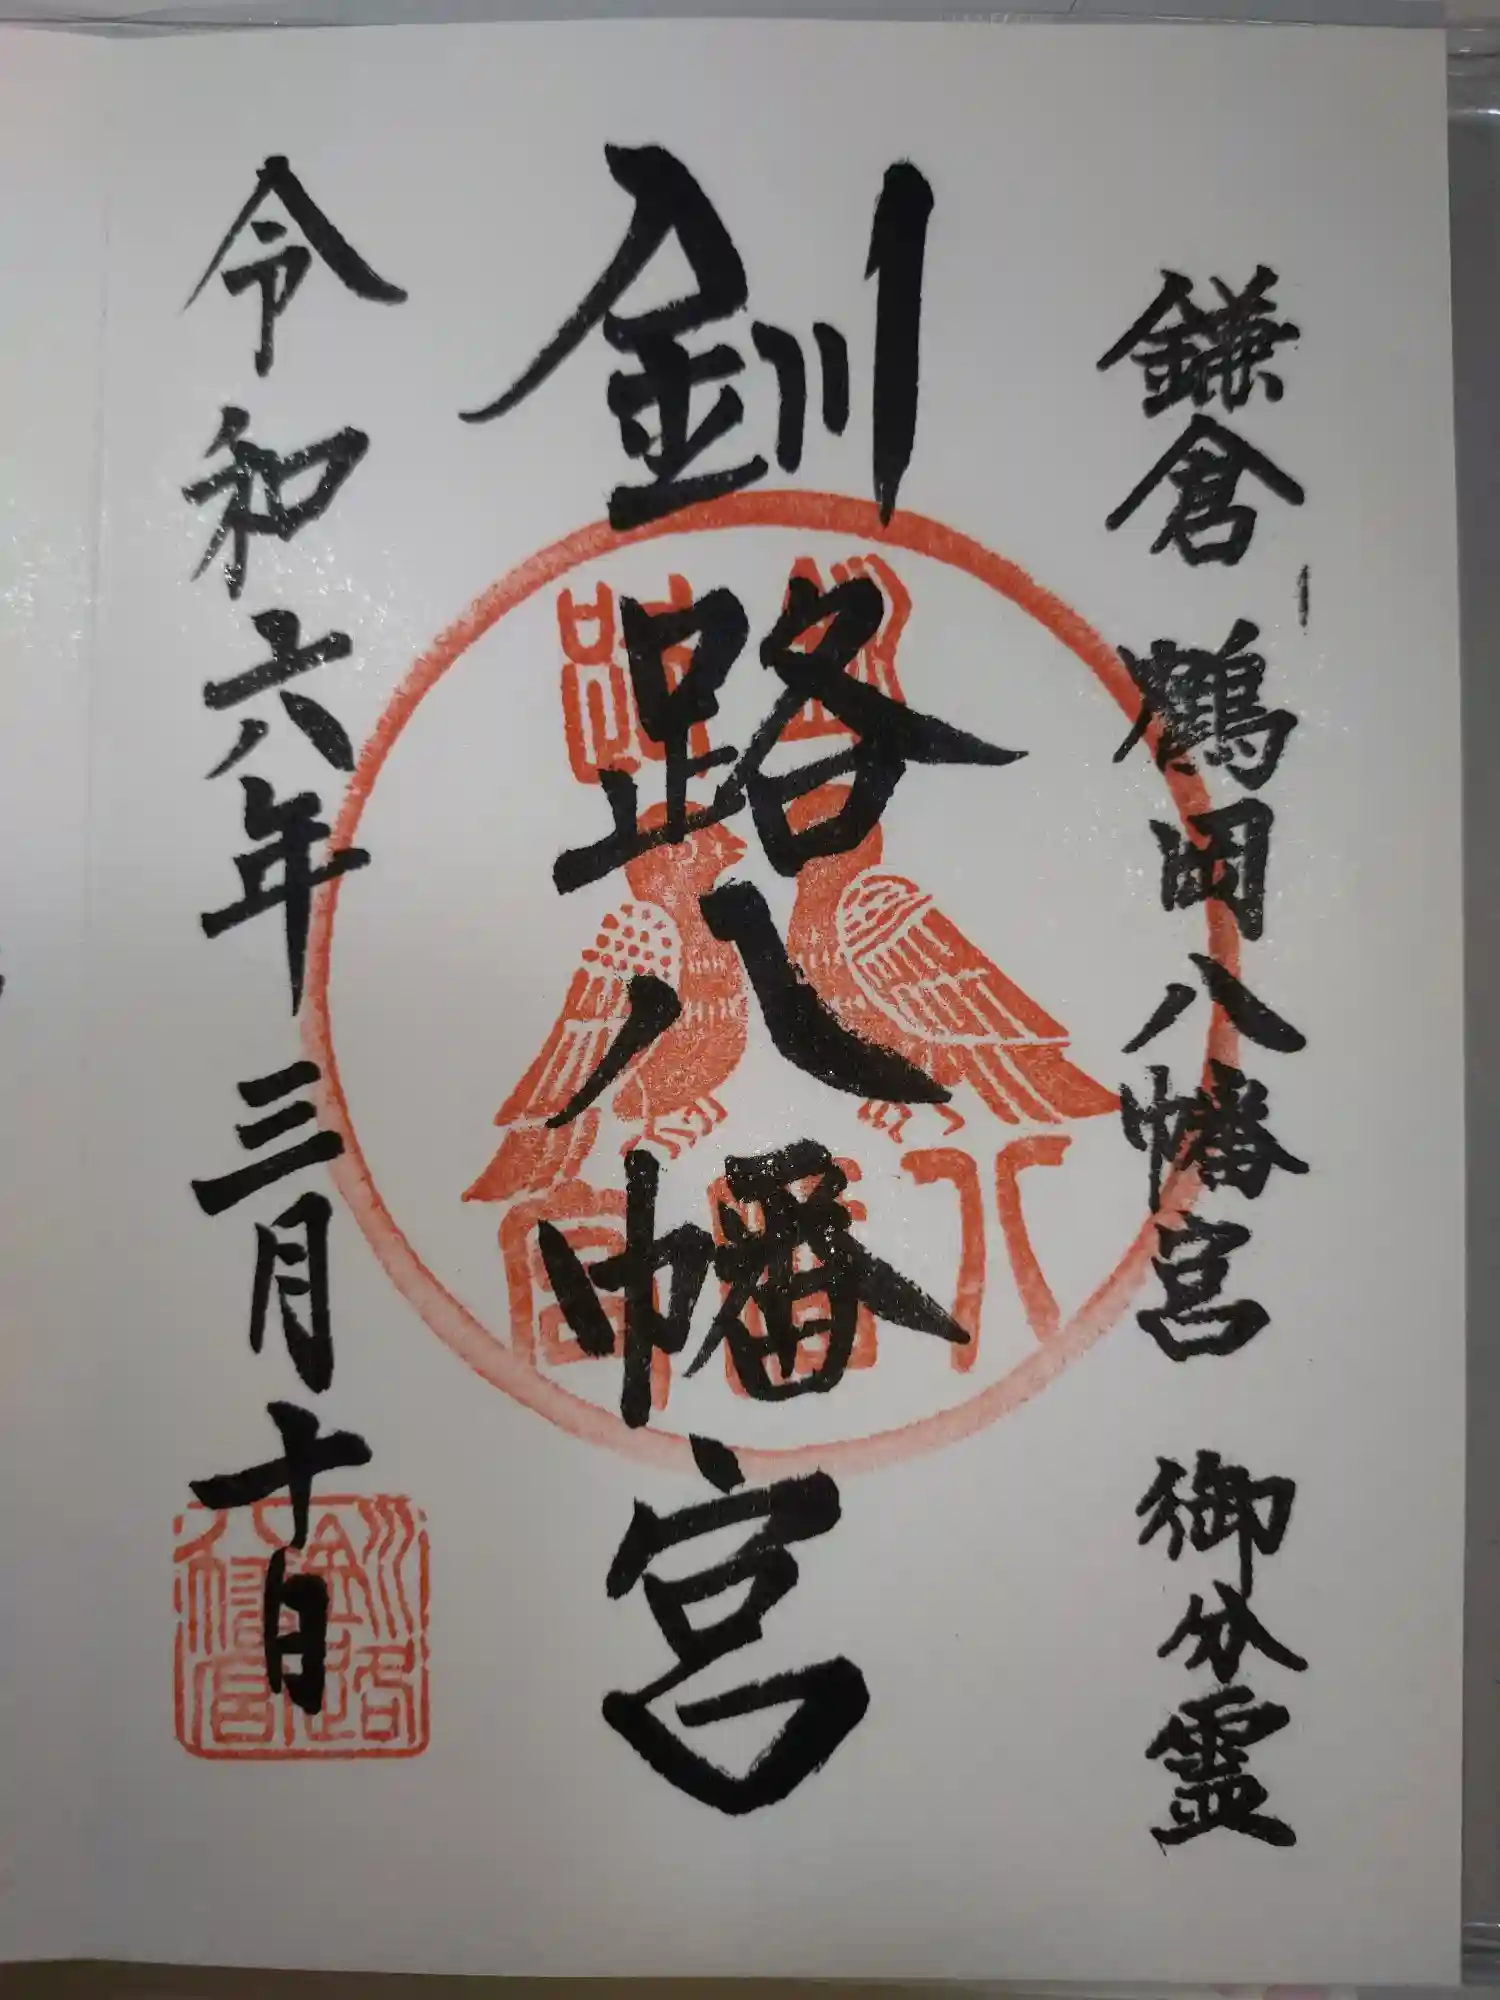 鎌倉 鶴岡八幡宮 御分霊
釧路八幡宮
令和六年三月十日
釧路
八幡宮
釧路
八幡宮